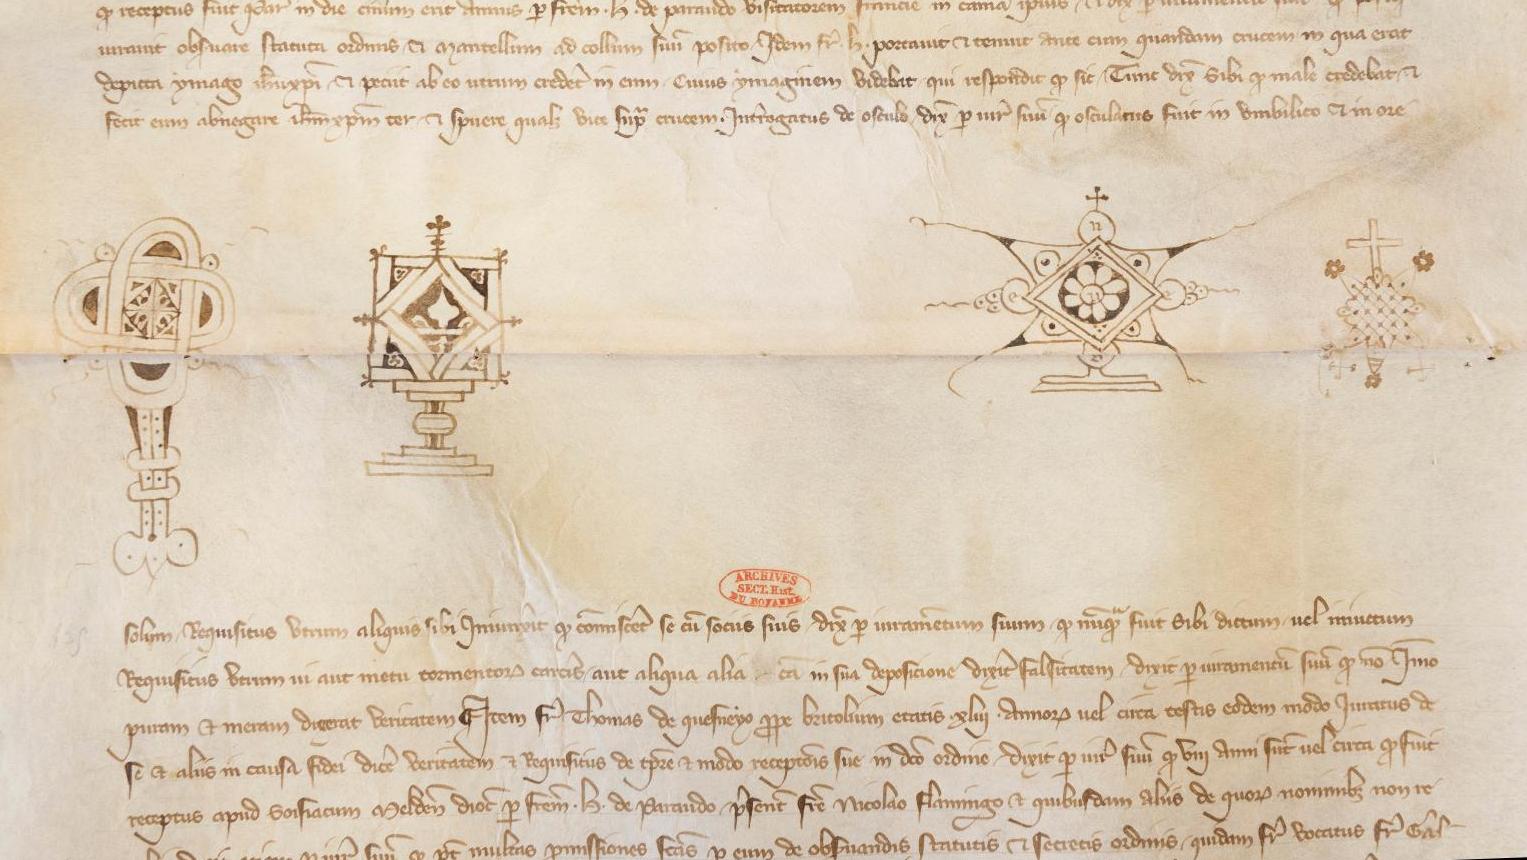 qp receptus fuit in die erit annus p frem . h . de parando visitatorem francie in
iuravit obsvare statuta ordinis & mantellum ad collum suu posito . Idem fr . h . portavit & tenuit ante eum quandam crucem in qua erat
depicta ymago & petiit ab eo utrum crederet in eum . Cuius ymaginem videbat qui respondit qp sic . Tunc dix sibi qp male credebat &
fecit eum abnegare ter & spuere qualz vice sup crucem . Introgatus de osculo dix p iur suu qp osculatus fuit in umbilico & in ore
n
ARCHIVES
SECT. Hist.
DU ROYAUME
solum . Requisitus utrum aliquis sibi qp se cu sociis suis . dix p iuramentum suum qp fuit sibi dictum vel
Requisitus utrum vi aut metu tormentor carceris aut aliqua alia ca in sua deposicione dixit falsitatem . dixit p iuramentu suu qp no Imo
puram & meram dixerat veritatem Item fr Thomas de quesneyo ppe britolium etatis xliij . Annor vel circa testis eodem modo Iuratus de
se & aliis in causa fidei dicere veritatem & Requisitus de tpre & modo receptois sue in dco ordine . dixit p iur suu qp viij anni sut vel circa qp fuit
receptus apud Meldeñ dioc p frem . h . de Parando . psent fre Nicolao flamingo & quibusdam aliis de quor nominibz non re
multas promissiones fctas p eum de obsvandis statutis & secretis ordinis quidam fr vocatus fr